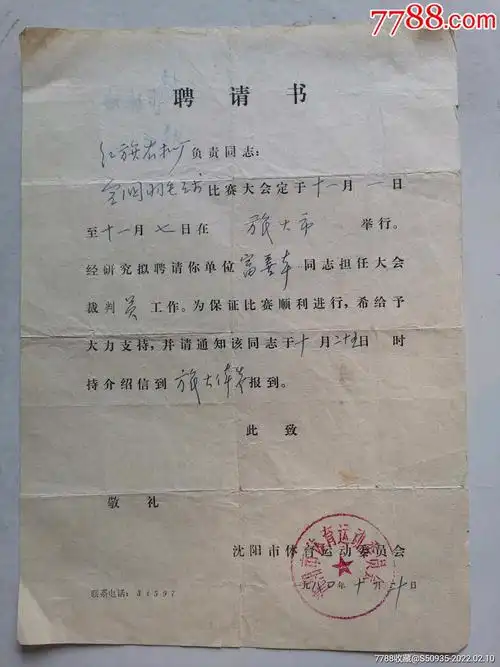 7788.com
中国收藏热线
聘请书
红旗农机厂负责同志:
全国羽毛球比赛大会定于十一月一日
至十一月七日在 旅大市 举行。
经研究拟聘请你单位富春年同志担任大会
裁判员工作。为保证比赛顺利进行,希给予
大力支持,并请通知该同志于十月二十五日 时
持介绍信到旅大体委报到。
此致
敬礼
沈阳市体育运动委员会
年十月二十日
联系电话:31597
7788收藏@S50935-2022.02.10